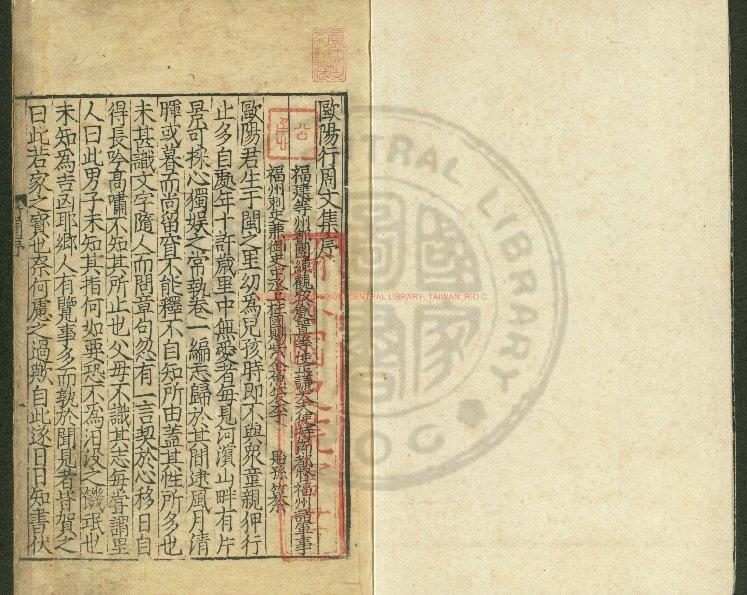 歐陽行周文集序
福建等州都團練觀察處置等使正議大夫使持節都督福州諸軍事
福州刺史兼御史中丞上柱國賜紫金魚袋李 貽孫 纂
歐陽君生于閩之里幼為兒孩時即不與眾童親狎行
止多自處年十許歲里中無愛者每見河濱山畔有片
景可採心獨娛之常執卷一編忘歸於其間逮風月清
暉或暮而尚留窅不能釋不自知所由蓋其性所多也
未甚識文字隨人而問章句忽有一言契於心移日自
得長吟高嘯不知其所止也父母不識其志每嘗謂里
人曰此男子未知其指何如要恐不為汩沒之饑氓也
未知為吉凶耶鄉人有覽事多而熟於聞見者皆賀之
曰此若家之寶也奈何慮之過歟自此遂日日知書伏
CENTRAL LIBRARY
R.O.C
NATIONAL CENTRAL LIBRARY, TAIWAN, R.O.C.